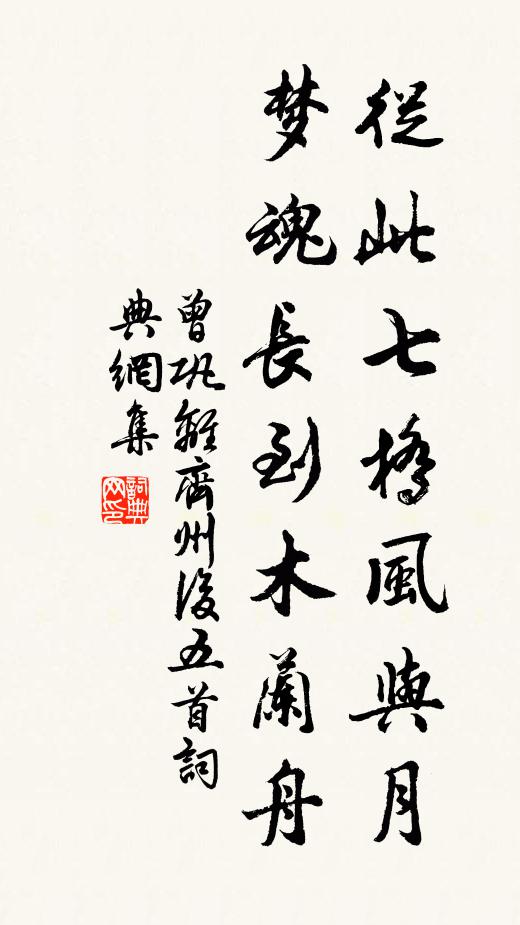 從此七橋風與月
梦魂長到木蘭舟
曾巩離齊州後五首詞
典網集
詞典
网印